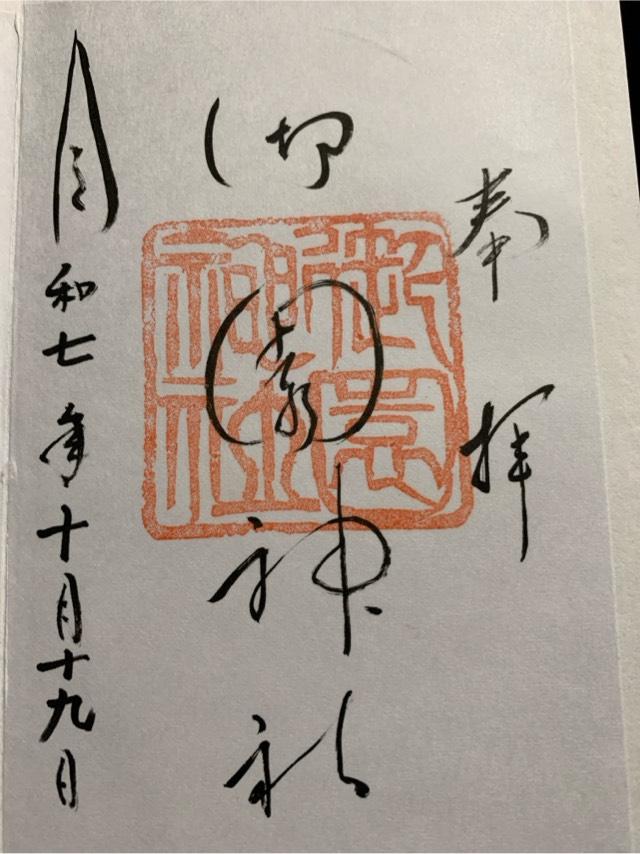 奉拝
御園神社
令和七年十月十九日